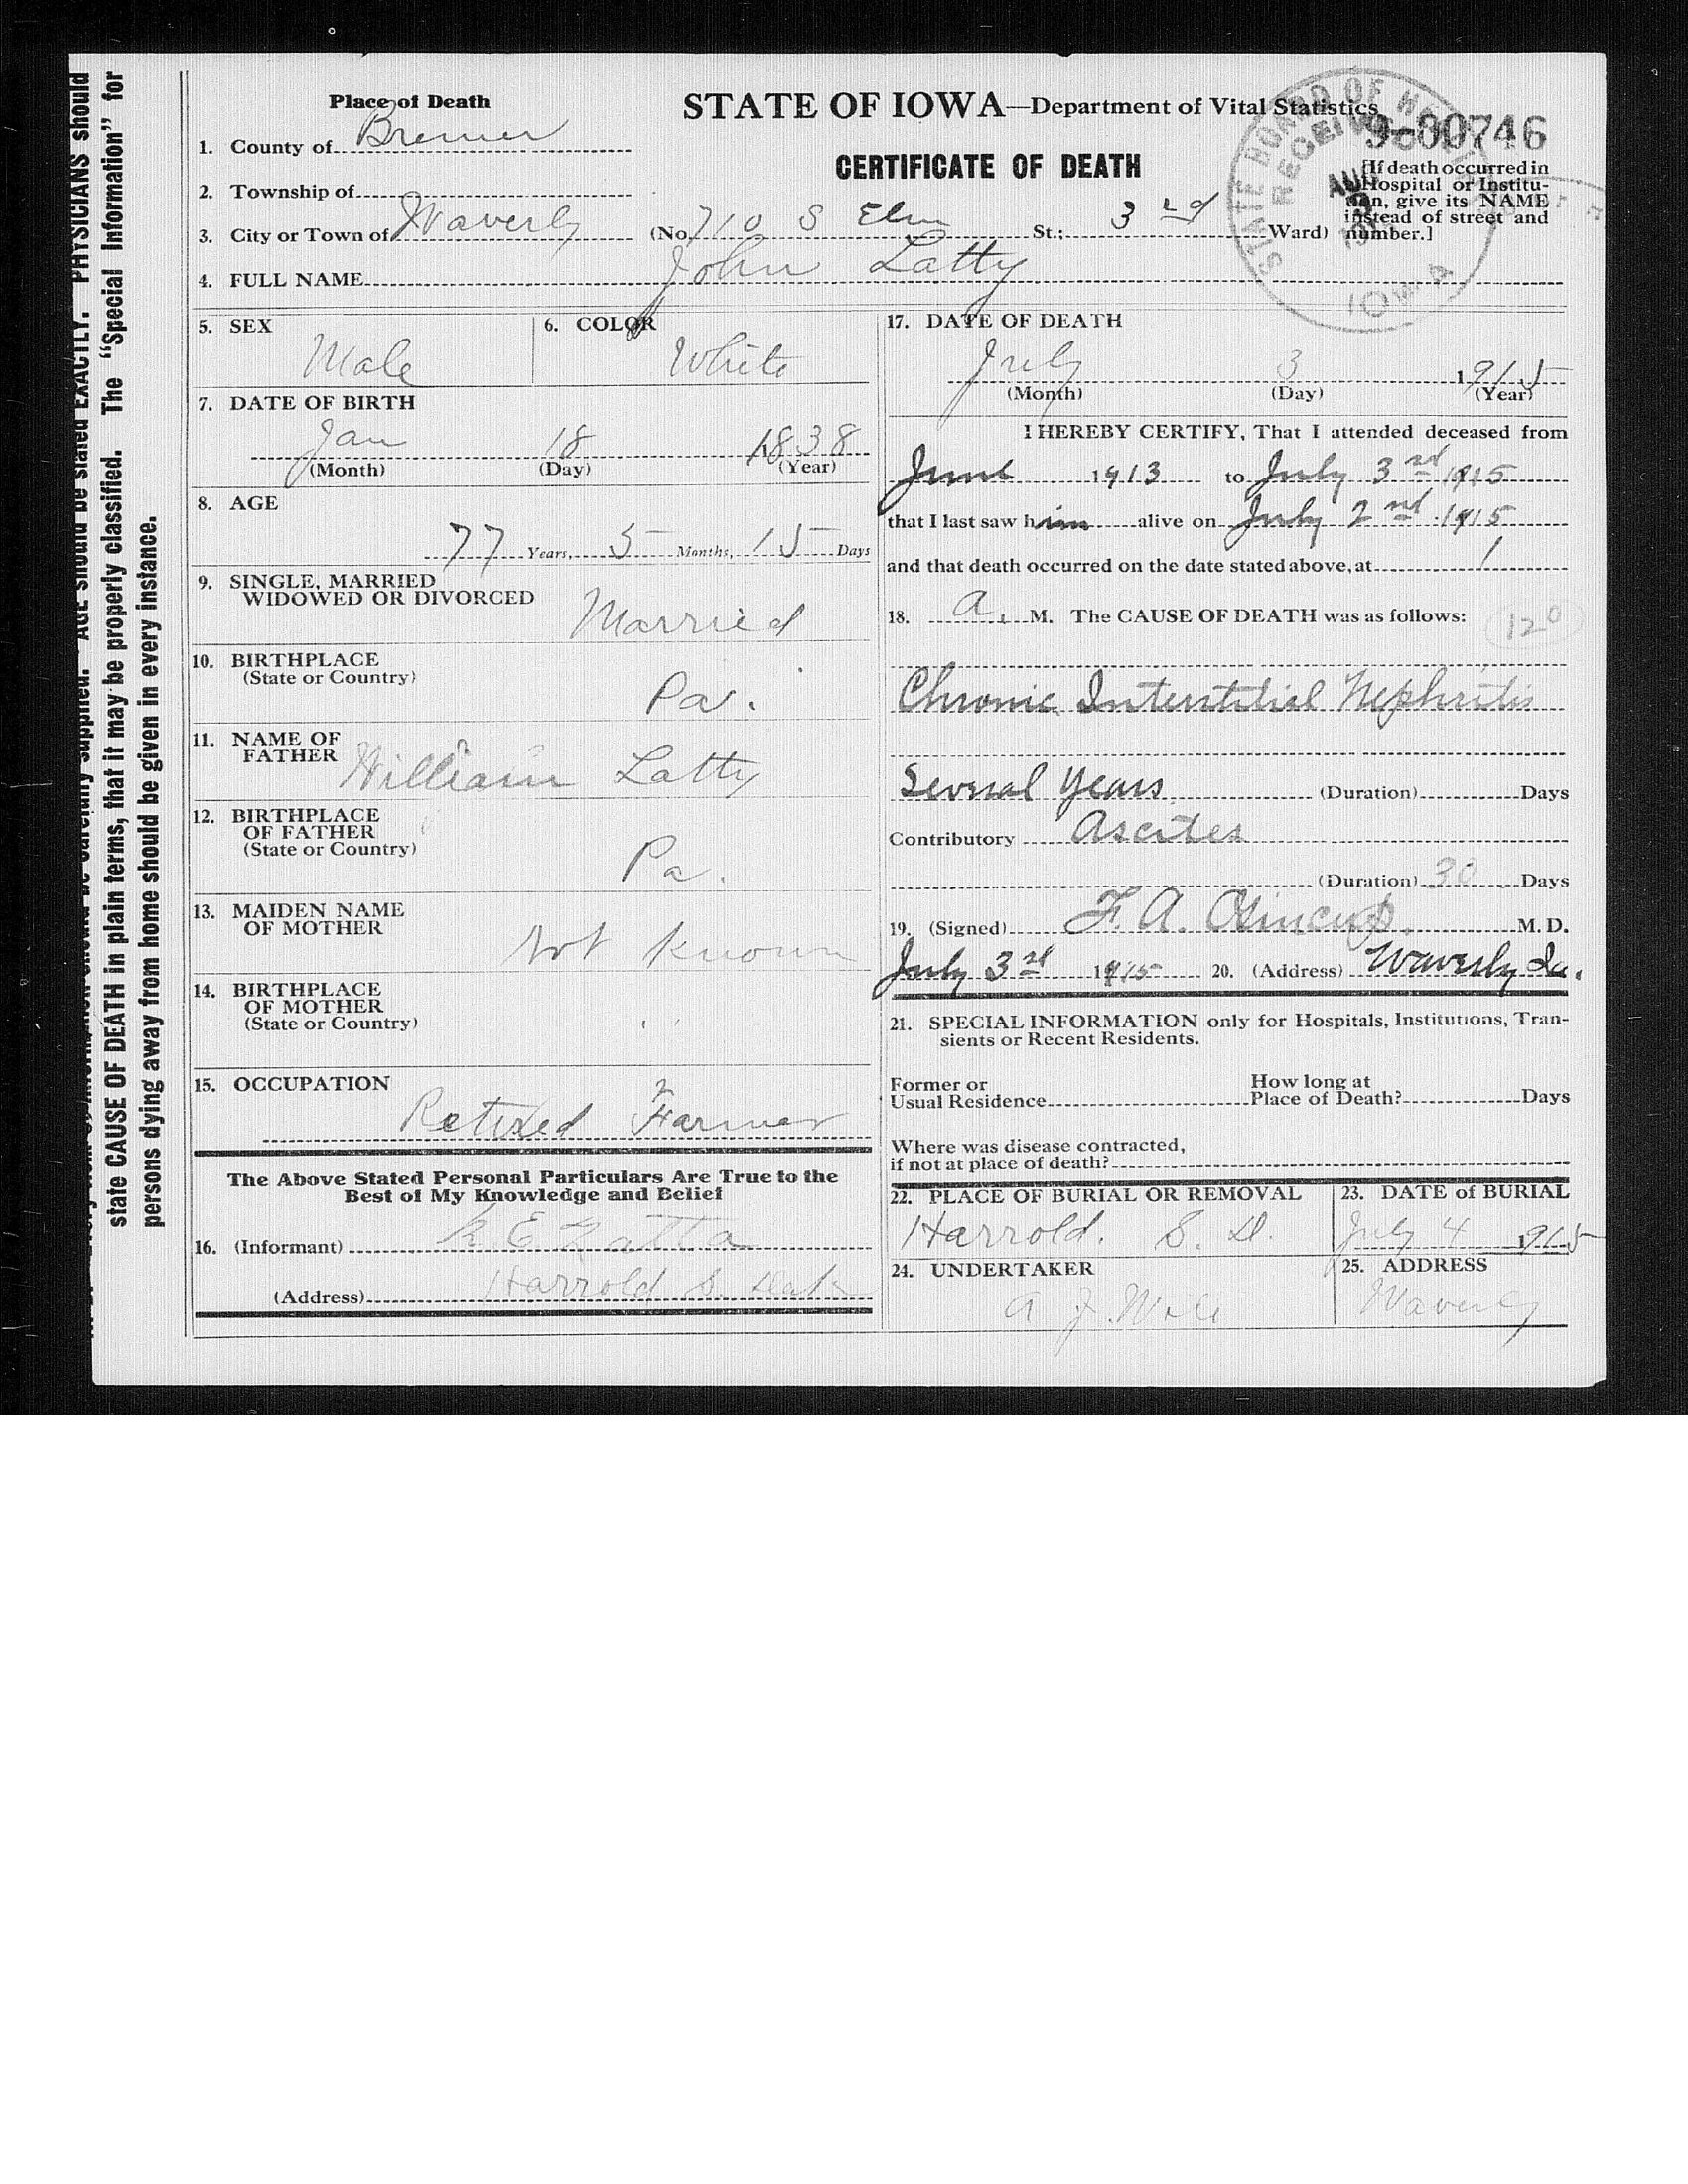 PHYSICIANS should
state CAUSE OF DEATH in plain terms, that it may be properly classified. The "Special Information" for
persons dying away from home should be given in every instance.
Place of Death
STATE OF IOWA—Department of Vital Statistics
9-00746
CERTIFICATE OF DEATH
STATE BOARD OF
RECEIVED
AUG
IOWA
1. County of Bremer
2. Township of
3. City or Town of Waverly (No. 710 S Elm St.; 3rd Ward)
[If death occurred in
Hospital or Institu-
tion, give its NAME
instead of street and
number.]
4. FULL NAME John Latty
5. SEX Male
6. COLOR White
7. DATE OF BIRTH
Jan 18 1838
(Month) (Day) (Year)
8. AGE
77 Years, 5 Months, 15 Days
9. SINGLE, MARRIED
WIDOWED OR DIVORCED Married
10. BIRTHPLACE
(State or Country) Pa.
11. NAME OF
FATHER William Latty
12. BIRTHPLACE
OF FATHER
(State or Country) Pa.
13. MAIDEN NAME
OF MOTHER Not Known
14. BIRTHPLACE
OF MOTHER
(State or Country) " "
15. OCCUPATION
Retired Farmer
The Above Stated Personal Particulars Are True to the
Best of My Knowledge and Belief
16. (Informant) E Latta
(Address) Harrold S. Dak
17. DATE OF DEATH
July 3 1915
(Month) (Day) (Year)
I HEREBY CERTIFY, That I attended deceased from
June 1913 to July 3rd 1915
that I last saw him alive on July 2nd 1915
and that death occurred on the date stated above, at 1
18. a. M. The CAUSE OF DEATH was as follows:
120
Chronic Interstitial Nephritis
Several Years (Duration) Days
Contributory Ascites
(Duration) 30 Days
19. (Signed) F. A. M. D.
July 3rd 1915 20. (Address) Waverly Ia.
21. SPECIAL INFORMATION only for Hospitals, Institutions, Tran-
sients or Recent Residents.
Former or
Usual Residence
How long at
Place of Death? Days
Where was disease contracted,
if not at place of death?
22. PLACE OF BURIAL OR REMOVAL
Harrold. S. D.
23. DATE of BURIAL
July 4 1915
24. UNDERTAKER
A J.
25. ADDRESS
Waverly